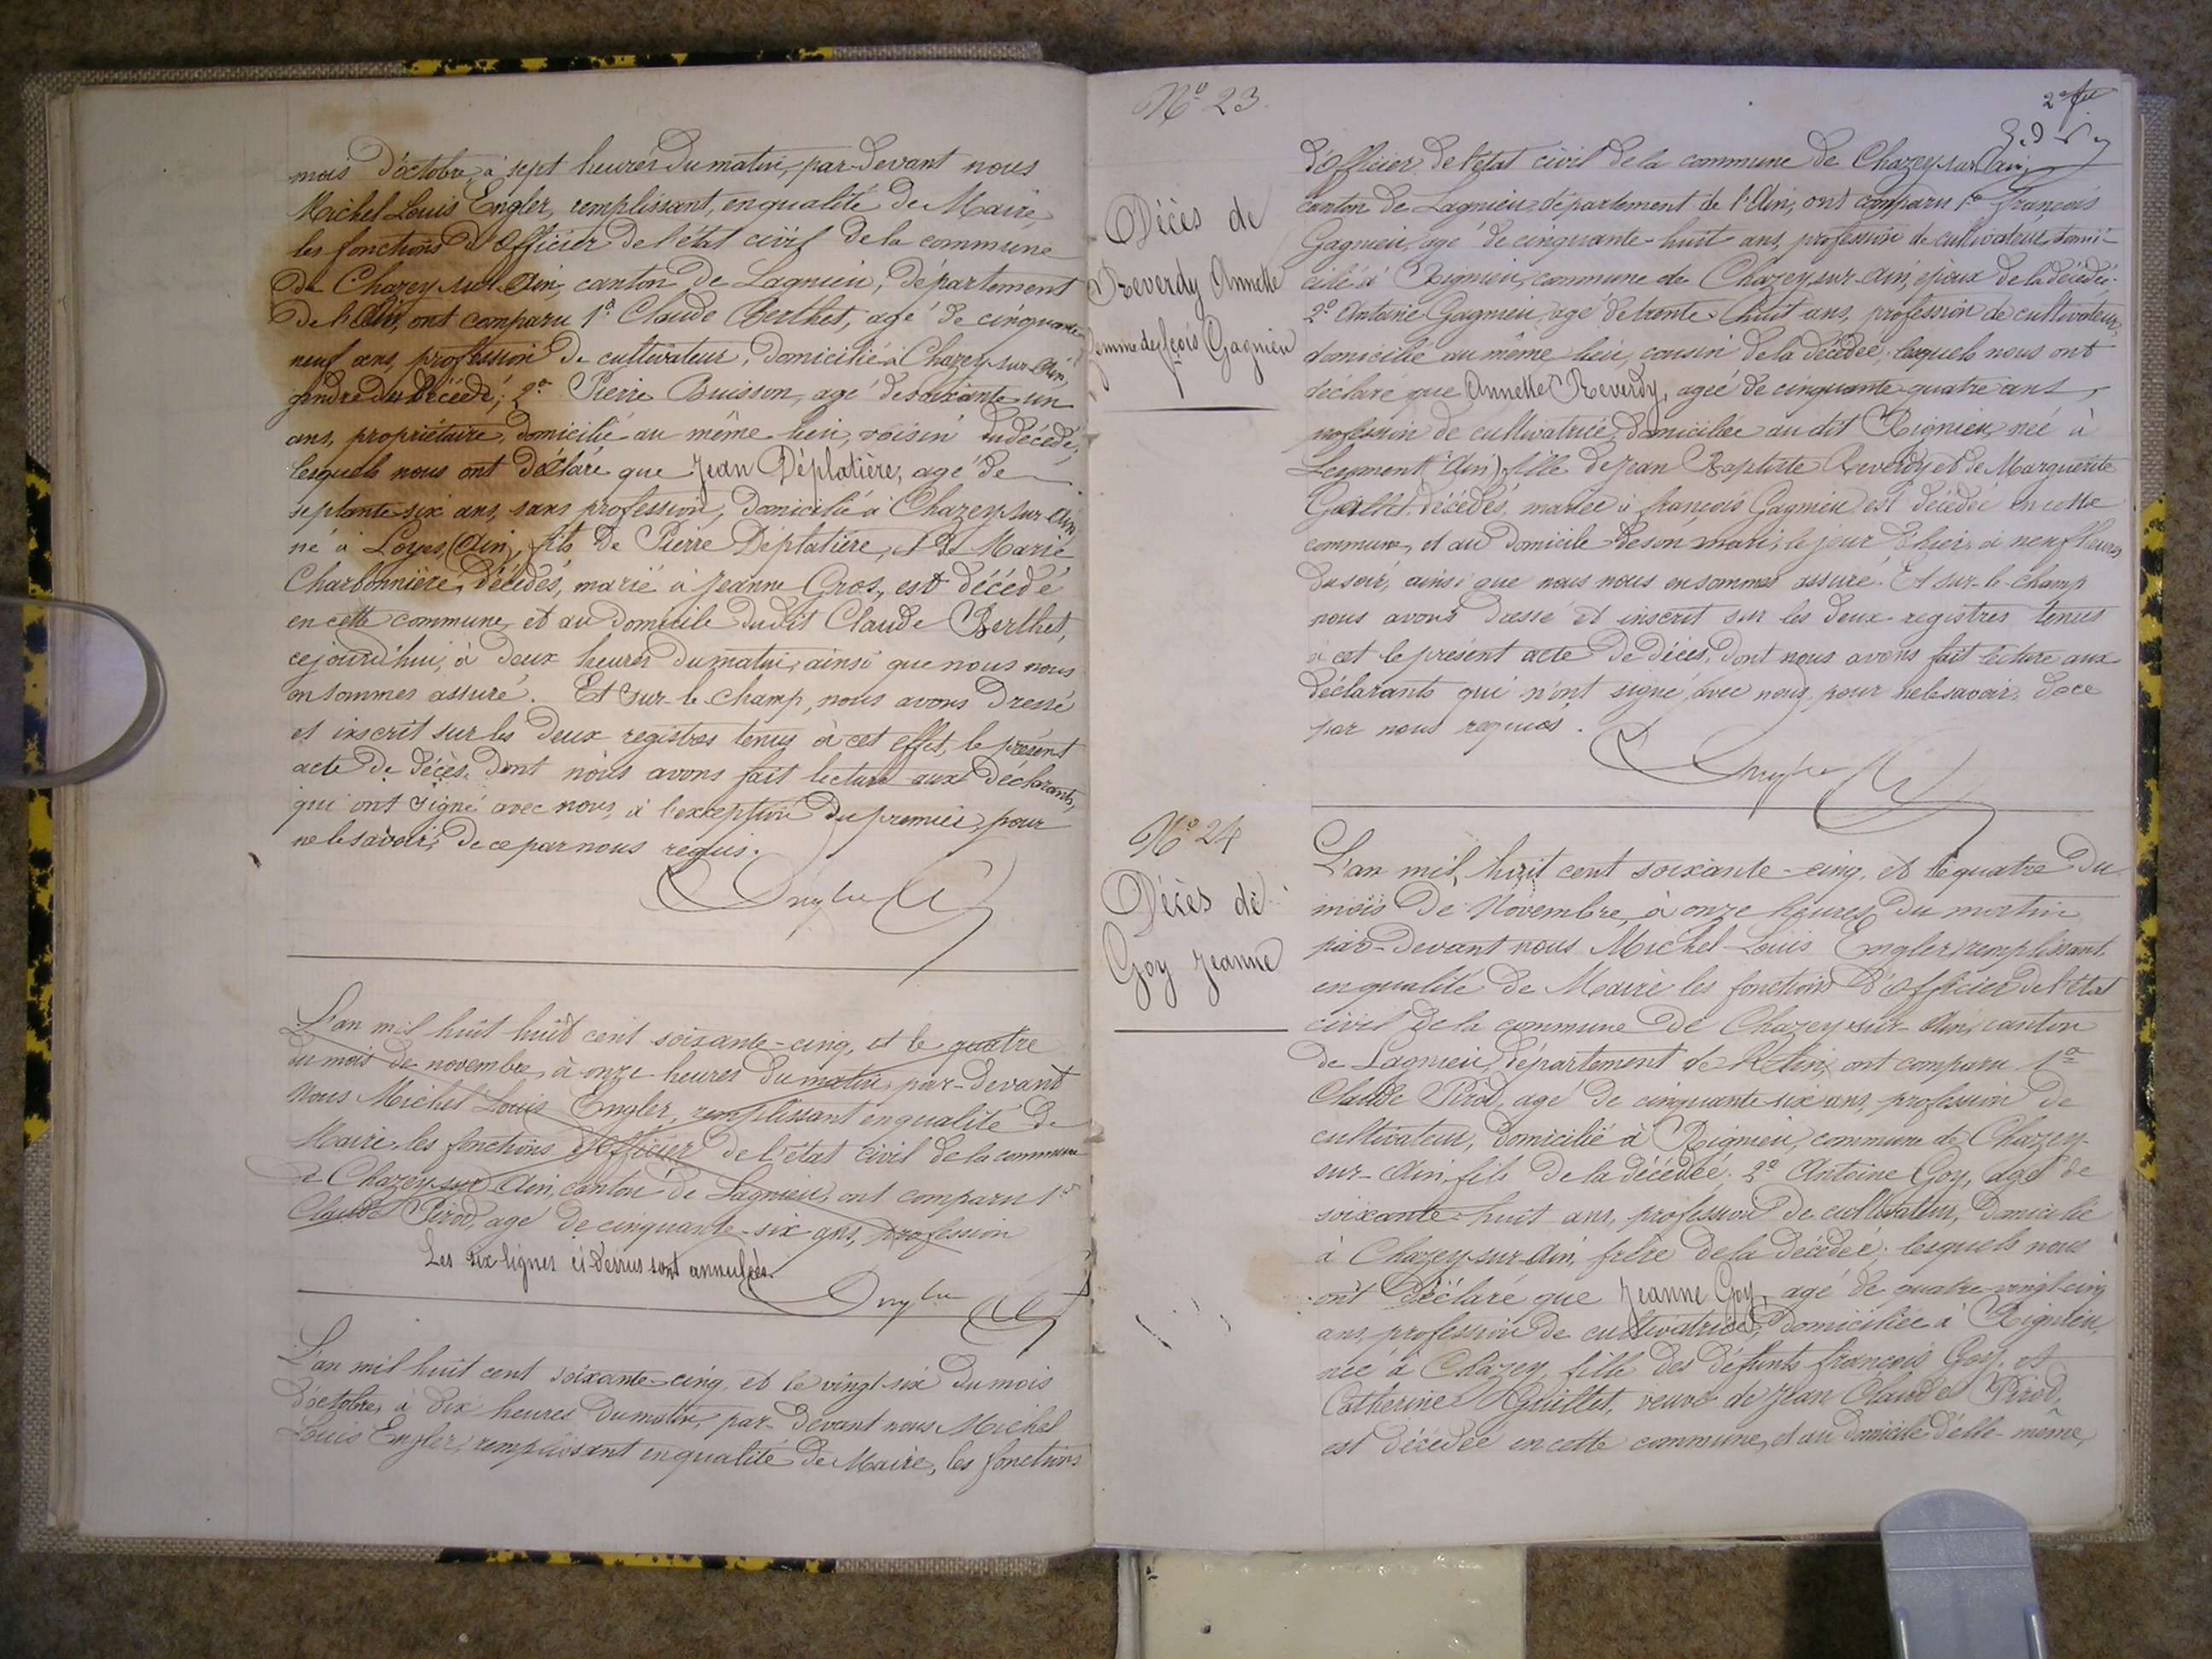 mois d'octobre, à sept heures du matin, par-devant nous
Michel Louis Engler, remplissant, en qualité de Maire,
les fonctions d'Officier de l'état civil de la commune
de Chazey-sur-Ain, canton de Lagnieu, département
de l'Ain, ont comparu 1º Claude Berthet, agé de cinquante
neuf ans, profession de cultivateur, domicilié à Chazey-sur-Ain,
gendre du décédé; 2º Pierre Buisson, agé de soixante-un
ans, propriétaire, domicilié au même lieu, voisin du décédé,
lesquels nous ont déclaré que Jean Déplatière, agé de
septante-six ans, sans profession, domicilié à Chazey-sur-Ain,
né à Loyes (Ain), fils de Pierre Déplatière, et de Marie
Charbonnière, décédés, marié à Jeanne Gros, est décédé
en cette commune, et au domicile dudit Claude Berthet,
cejourd'hui, à deux heures du matin, ainsi que nous nous
en sommes assuré. Et sur-le-champ, nous avons dressé
et inscrit sur les deux registres tenus à cet effet, le présent
acte de décès, dont nous avons fait lecture aux déclarants,
qui ont signé avec nous, à l'exception du premier, pour
ne le savoir, de ce par nous requis.
Engler
L'an mil huit huit cent soixante-cinq, et le quatre
du mois de novembre, à onze heures du matin, par-devant
Nous Michel Louis Engler, remplissant en qualité de
Maire, les fonctions d'Officier de l'état civil de la commune
de Chazey-sur-Ain, canton de Lagnieu, ont comparu 1º
Claude Pirod, agé de cinquante-six ans, profession
Les six lignes ci-dessus sont annulées.
Engler
L'an mil huit cent soixante-cinq, et le vingt-six du mois
d'octobre, à dix heures du matin, par-devant nous Michel
Louis Engler, remplissant en qualité de Maire, les fonctions
Nº 23.
Décès de
Reverdy Annette
femme de fçois Gagnieu
d'Officier de l'état civil de la commune de Chazey-sur-Ain,
canton de Lagnieu, département de l'Ain, ont comparu 1º François
Gagnieu, agé de cinquante-huit ans, profession de cultivateur, domi-
cilié à Rignieu, commune de Chazey-sur-Ain, époux de la décédée.
2º Antoine Gagnieu agé de trente-huit ans, profession de cultivateur,
domicilié au même lieu, cousin de la décédée, lesquels nous ont
déclaré que Annette Reverdy, agée de cinquante-quatre ans,
profession de cultivatrice, domiciliée au dit Rignieu, née à
Leyment (Ain), fille de Jean Baptiste Reverdy et de Marguerite
décédés, mariée à françois Gagnieu, est décédée en cette
commune, et au domicile de son mari, le jour d'hier, à neuf heures
du soir, ainsi que nous nous en sommes assuré. Et sur-le-champ
nous avons dressé et inscrit sur les deux registres tenus
à cet le présent acte de décès, dont nous avons fait lecture aux
déclarants qui n'ont signé, avec nous, pour ne le savoir, de ce
par nous requis.
Engler
Nº 24
Décès de
Goy Jeanne
L'an mil huit cent soixante-cinq, et le quatre du
mois de Novembre, à onze heures du matin
par-devant nous Michel Louis Engler, remplissant,
en qualité de Maire les fonctions d'Officier de l'état
civil de la commune de Chazey-sur-Ain, canton
de Lagnieu, département de l'Ain, ont comparu 1º
Claude Pirod, agé de cinquante-six ans, profession de
cultivateur, domicilié à Rignieu, commune de Chazey-
sur-Ain, fils de la décédée. 2º Antoine Goy, agé de
soixante-huit ans, profession de cultivateur, domicilié
à Chazey-sur-Ain, frère de la décédée, lesquels nous
ont déclaré que Jeanne Goy, agé de quatre-vingt-cinq
ans, profession de cultivatrice, domiciliée à Rignieu,
née à Chazey, fille des défunts françois Goy, et
Catherine Guillet, veuve de Jean Claude Pirod,
est décédée en cette commune, et au domicile d'elle-même,